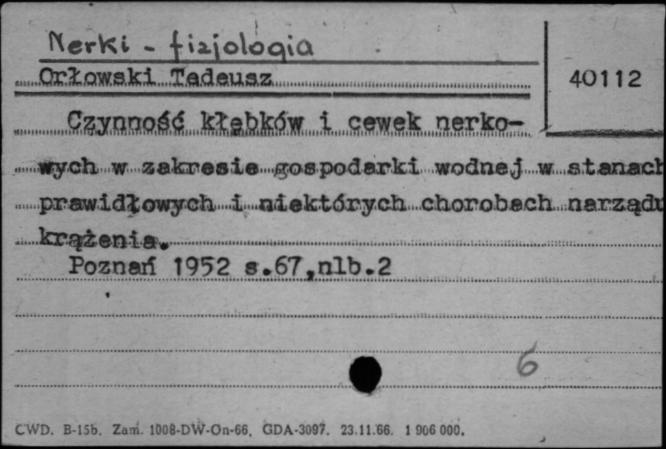 Nerki - fizjologia
Orłowski Tadeusz
40112
Czynność kłębków i cewek nerko-
wych w zakresie gospodarki wodnej w stanach
prawidłowych i niektórych chorobach narządu
krążenia.
Poznań 1952 s.67,nlb.2
6
CWD. B-15b. Zam. 1008-DW-On-66. GDA-3097. 23.11.66. 1 906 000.